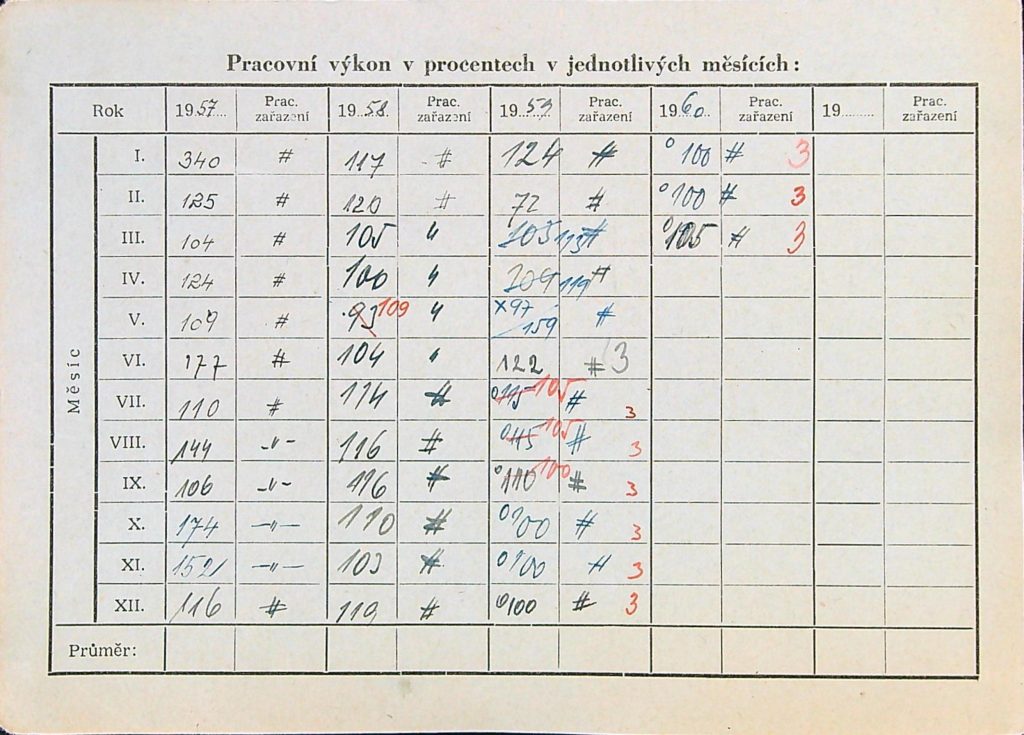 Pracovní výkon v procentech v jednotlivých měsících:
Rok 1957 Prac. zařazení 1958 Prac. zařazení 1959 Prac. zařazení 1960 Prac. zařazení 19 Prac. zařazení
Měsíc
I. 340 # 117 # 124 # 0 100 # 3
II. 125 # 120 # 72 # 0 100 # 3
III. 104 # 105 " 103 113 # 0 105 # 3
IV. 124 # 100 " 109 119 # 
V. 109 # 93 109 " x97 159 #
VI. 177 # 104 " 122 # 3
VII. 110 # 114 # 0 115 105 # 3
VIII. 144 -"- 116 # 0 115 105 # 3
IX. 106 -"- 116 # 0 110 100 # 3
X. 174 -"- 110 # 0 100 # 3
XI. 152 -"- 103 # 0 100 # 3
XII. 116 # 119 # 0 100 # 3
Průměr: